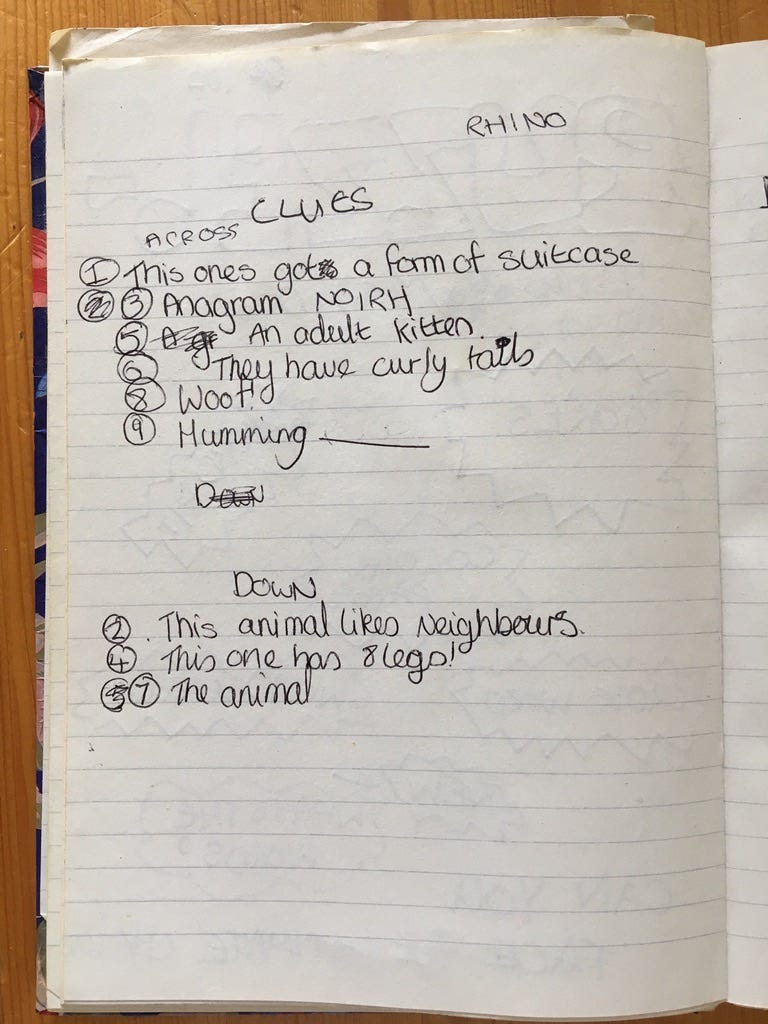 RHINO
CLUES
ACROSS
1 This ones got a form of suitcase
3 Anagram NOIRH
5 An adult kitten.
6 They have curly tails
8 Woof!
9 Humming ______
DOWN
DOWN
2. This animal likes Neighbours.
4 This one has 8 legs!
7 The animal